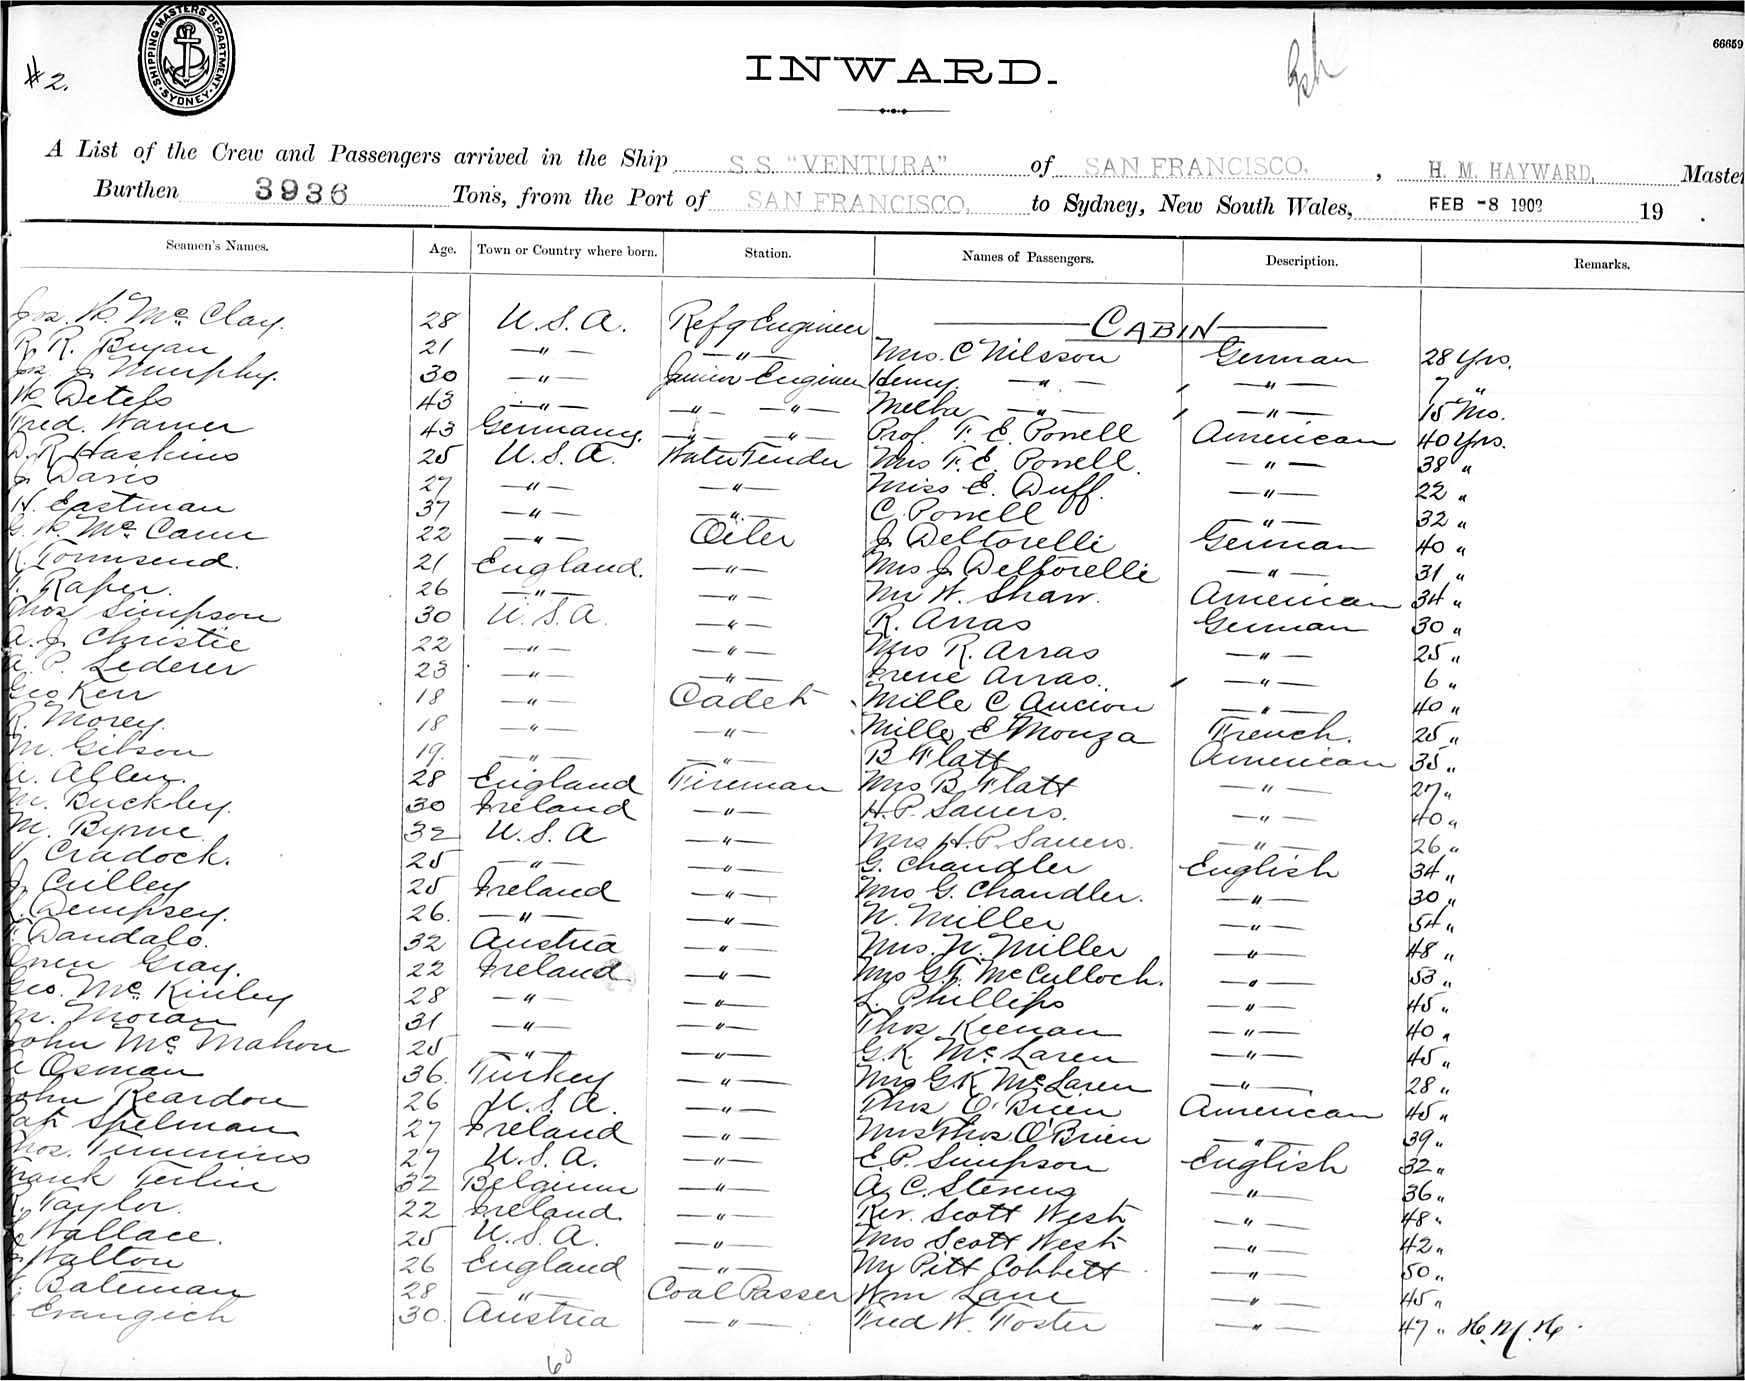 #2.
SHIPPING MASTERS DEPARTMENT
SYDNEY
66659
INWARD.
A List of the Crew and Passengers arrived in the Ship S.S. "VENTURA" of SAN FRANCISCO, , H. M. HAYWARD, Master
Burthen 3936 Tons, from the Port of SAN FRANCISCO, to Sydney, New South Wales, FEB -8 1902 19 .
Seamen's Names. Age. Town or Country where born. Station. Names of Passengers. Description. Remarks.
Mc Clay. 28 U.S.A. Refg Engineer CABIN
R. R. Bryan 21 —"— —"— Mrs. C Nilsson German 28 Yrs.
J. Murphy. 30 —"— Junior Engineer Henry —"— —"— 7 "
Detels 43 —"— —"— —"— Melba —"— —"— 15 Mo.
Fred. Warner 43 Germany. —"— —"— Prof. F. E. Powell American 40 Yrs.
D. R. Haskins 25 U.S.A. Water Tender Mrs F. E. Powell. —"— 38 "
J. Davis 27 —"— —"— Miss E. Duff. —"— 22 "
H. Eastman 37 —"— —"— C. Powell —"— 32 "
Mc Cann 22 —"— Oiler J. Deltorelli German 40 "
Townsend. 21 England. —"— Mrs J. Deltorelli —"— 31 "
Raper. 26 —"— —"— Mr W. Shaw. American 34 "
Thos Simpson 30 U.S.A. —"— R. Arras German 30 "
A. J. Christie 22 —"— —"— Mrs R. Arras —"— 25 "
P. Lederer 23 —"— —"— Irene Arras. —"— 6 "
Geo Kerr 18 —"— Cadet Mille C Aucion —"— 40 "
R. Morey. 18 —"— —"— Mille E Monza French. 25 "
M. Gibson 19. —"— —"— B Flatt American 35 "
A. Allen. 28 England Fireman Mrs B Flatt —"— 27 "
M. Buckley. 30 Ireland —"— H. P. Sauers. —"— 40 "
M. Byrne 32 U.S.A —"— Mrs H. P. Sauers. —"— 26 "
Cradock. 25 —"— —"— G. Chandler English 34 "
J. Crilley 25 Ireland —"— Mrs G. Chandler. —"— 30 "
Dempsey. 26. —"— —"— W. Miller —"— 54 "
Dandalo. 32 Austria —"— Mrs. W. Miller —"— 48 "
Owen Gray. 22 Ireland —"— Mrs G. F. McCulloch. —"— 53 "
Geo. Mc Kinley 28 —"— —"— L. Phillips —"— 45 "
M. Moran 31 —"— —"— Thos Keenan —"— 40 "
John Mc Mahon 25 —"— —"— G. K. Mc Laren —"— 45 "
Osman 36. Turkey —"— Mrs G. K. McLaren —"— 28 "
John Reardon 26 U.S.A. —"— Thos O'Brien American 45 "
Pat Spelman 27 Ireland —"— Mrs Thos O'Brien —"— 39 "
Thos. Timmins 27 U.S.A. —"— E. P. Simpson English 32 "
Frank Terlin 32 Belgium —"— A. C. Stevens —"— 36 "
Taylor. 22 Ireland —"— Rev. Scott West —"— 48 "
Wallace. 25 U.S.A. —"— Mrs Scott West —"— 42 "
Walton 26 England —"— Mr Pitt Cobbett —"— 50 "
Bateman 28 —"— Coal Passer Wm Lane —"— 45 "
Evangich 30 Austria —"— Fred W. Foster —"— 47 " H. M. H.